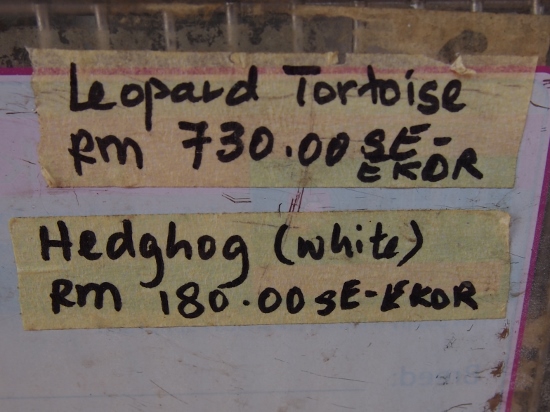 Leopard Tortoise
RM 730.00 SE-
EKOR
Hedghog (white)
RM 180.00 SE-EKOR